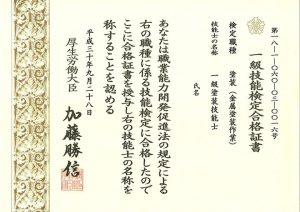 第一八-一-〇六〇-〇三-〇〇一六号
一級技能検定合格証書
検定職種 塗装(金属塗装作業)
技能士の名称 一級塗装技能士
氏名
あなたは職業能力開発促進法の規定による
右の職種に係る技能検定に合格したので
ここに合格証書を授与し右の技能士の名称を
称することを認める
平成三十年九月二十八日
厚生労働大臣 加藤勝信